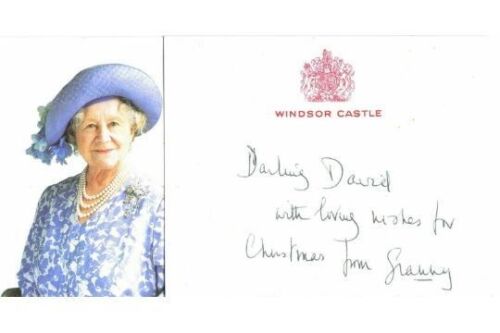 WINDSOR CASTLE
Darling David
with loving wishes for
Christmas from Granny